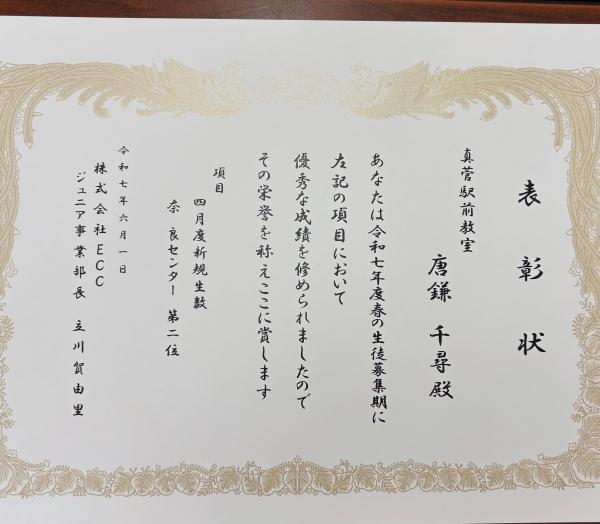 表彰状
真菅駅前教室
唐鎌 千尋 殿
あなたは令和七年度春の生徒募集期に
左記の項目において
優秀な成績を修められましたので
その栄誉を称えここに賞します
項目
四月度新規生数
奈良センター 第二位
令和七年六月一日
株式会社ECC
ジュニア事業部長 立川賀由里